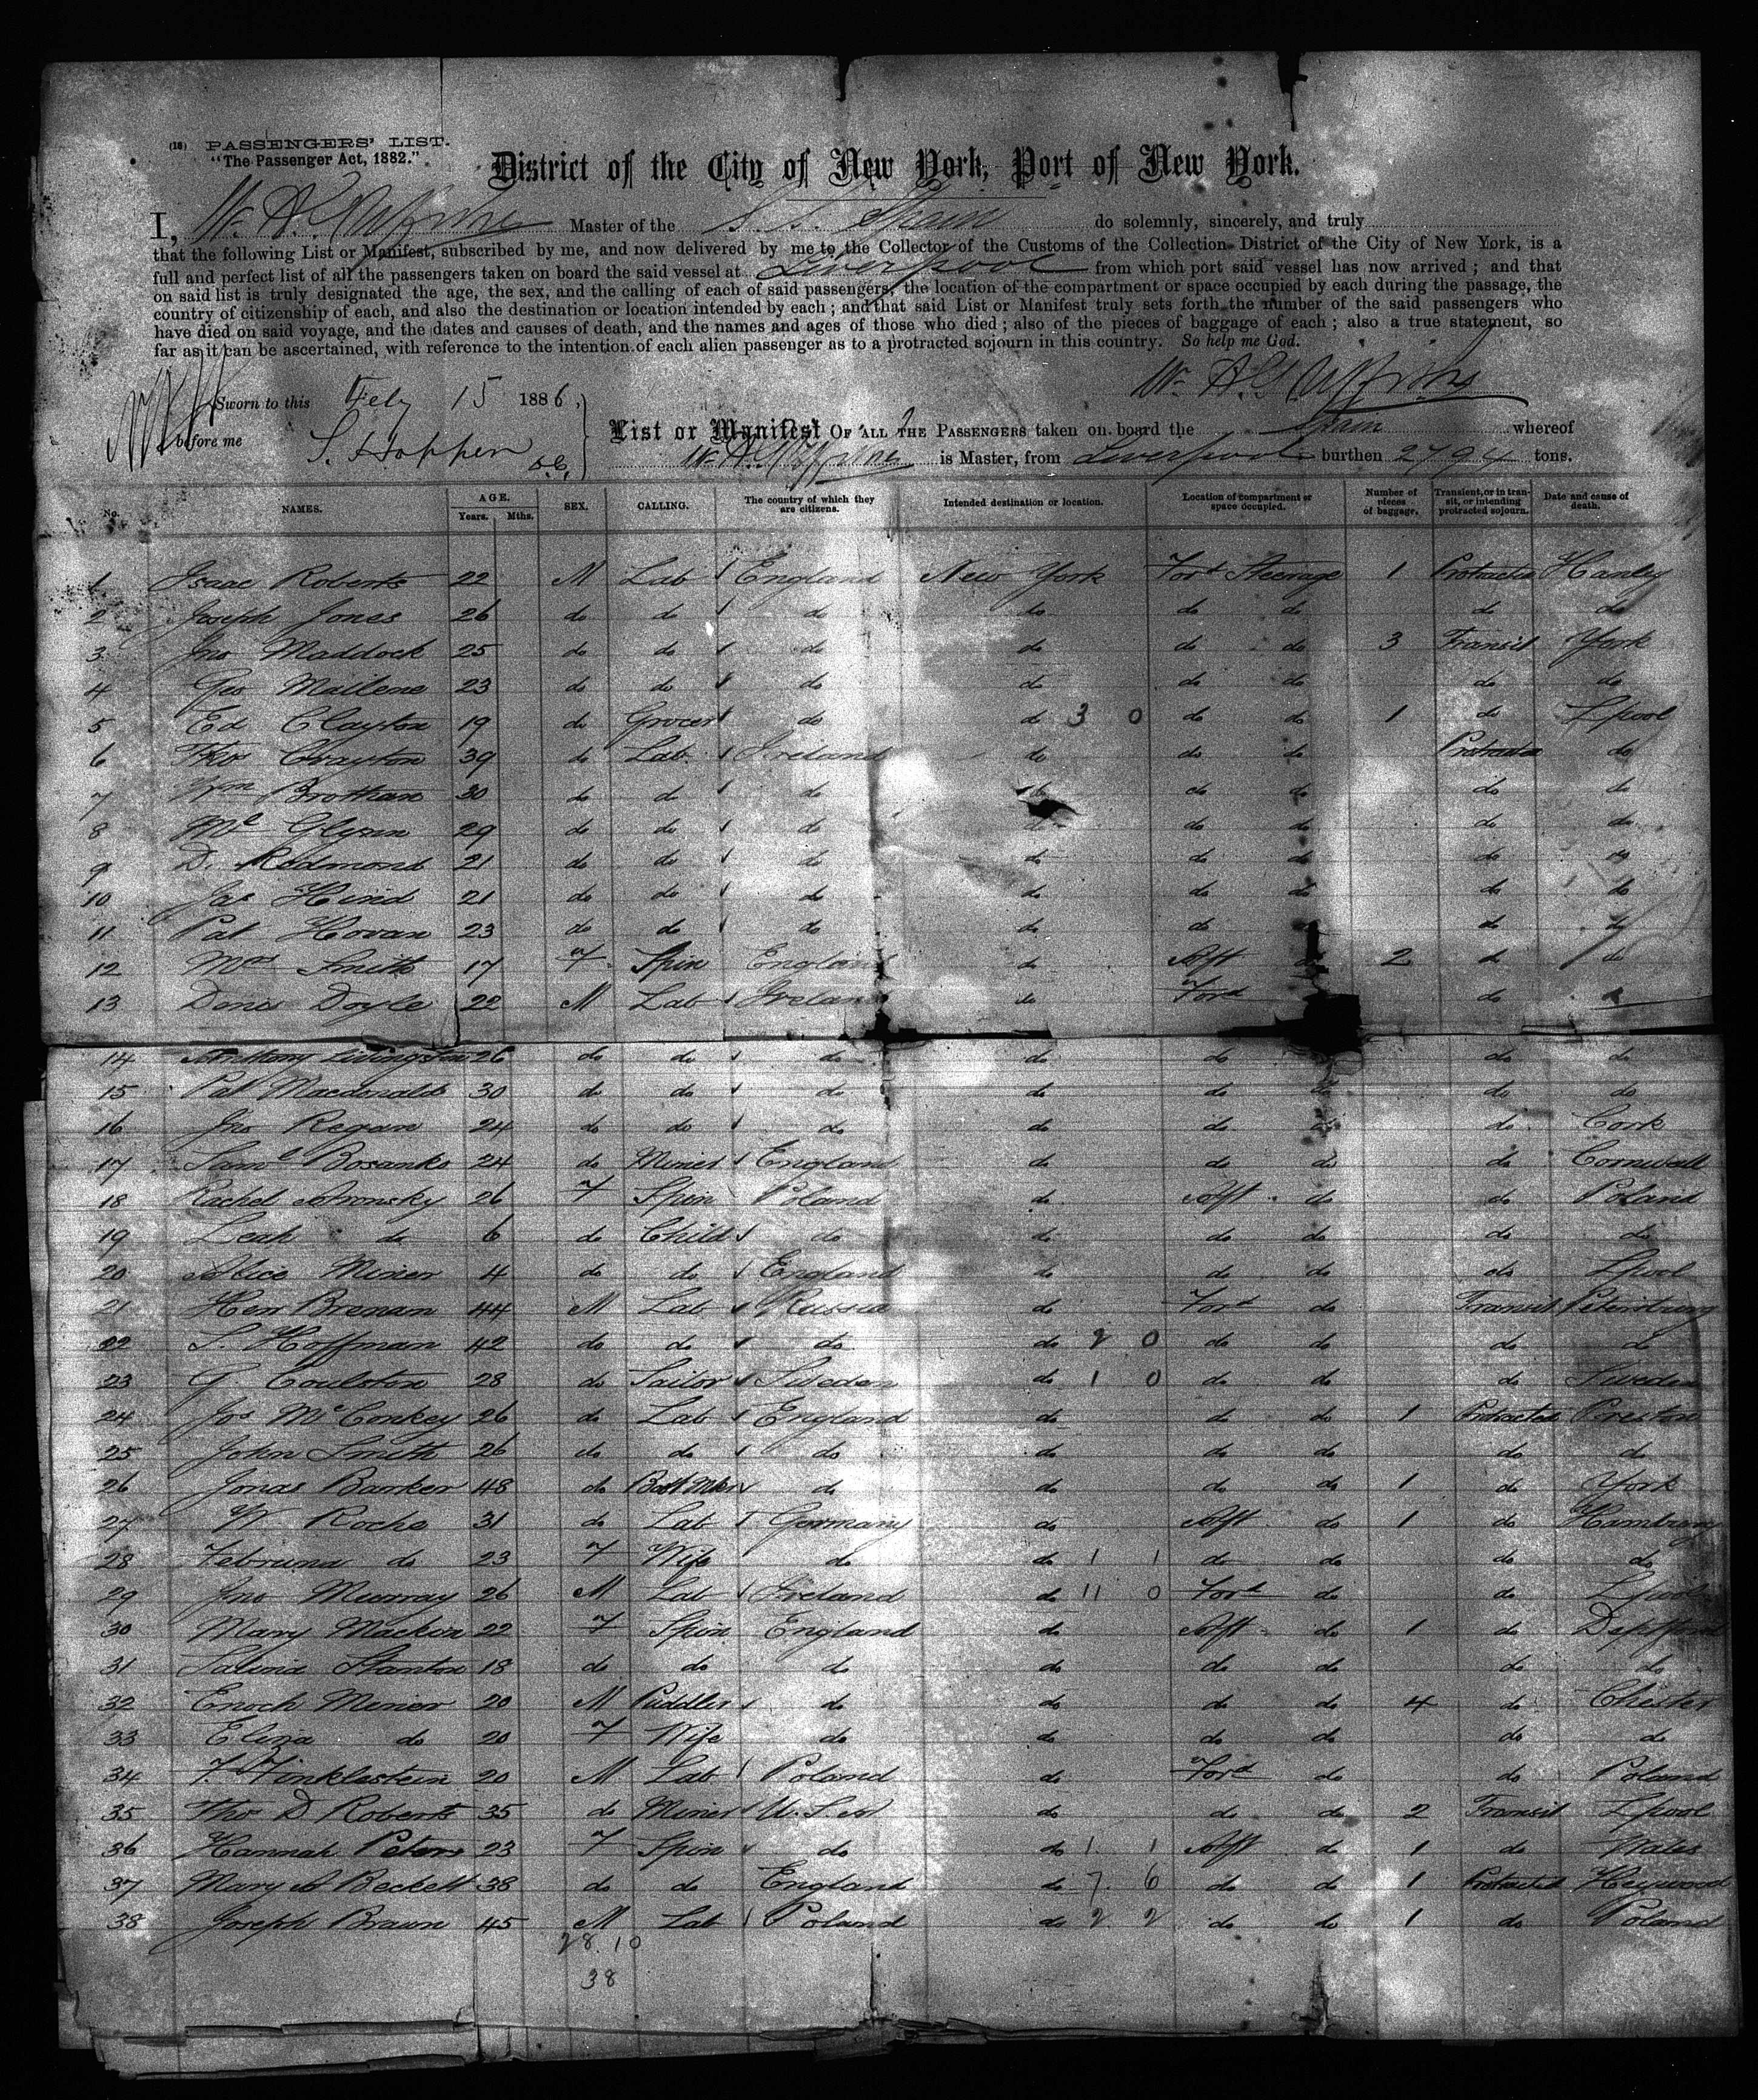 (18) PASSENGERS' LIST.
"The Passenger Act, 1882."
District of the City of New York, Port of New York.
I, Master of the S. S. Spain do solemnly, sincerely, and truly
that the following List or Manifest, subscribed by me, and now delivered by me to the Collector of the Customs of the Collection District of the City of New York, is a
full and perfect list of all the passengers taken on board the said vessel at Liverpool from which port said vessel has now arrived; and that
on said list is truly designated the age, the sex, and the calling of each of said passengers, the location of the compartment or space occupied by each during the passage, the
country of citizenship of each, and also the destination or location intended by each; and that said List or Manifest truly sets forth the number of the said passengers who
have died on said voyage, and the dates and causes of death, and the names and ages of those who died; also of the pieces of baggage of each; also a true statement, so
far as it can be ascertained, with reference to the intention of each alien passenger as to a protracted sojourn in this country. So help me God.
Sworn to this Feby 15 1886,
before me S. Hoppen D.C.
List or Manifest OF ALL THE PASSENGERS taken on board the Spain whereof
is Master, from Liverpool burthen 2794 tons.
No. NAMES. AGE. Years. Mths. SEX. CALLING. The country of which they are citizens. Intended destination or location. Location of compartment or space occupied. Number of pieces of baggage. Transient, or in transit, or intending protracted sojourn. Date and cause of death.
1 Isaac Roberts 22 M Lab England New York Ford Steerage 1 Protracted Hanley
2 Joseph Jones 26 do do do do do do do do
3 Jno Maddock 25 do do do do do do 3 Transit York
4 Geo Mailene 23 do do do do do do do do
5 Ed Clayton 19 do Grocer do do 3 0 do do 1 do Lpool
6 Thos Crayton 39 do Lab Ireland do do do Protracted do
7 Wm Brothan 30 do do do do do do do do
8 Ml Glynn 29 do do do do do do do do
9 D. Redmond 21 do do do do do do do do
10 Jas Hind 21 do do do do do do do do
11 Pat Hovan 23 do do do do do do do do
12 Mrs Smith 17 F Spin England do Aft do 2 do do
13 Denis Doyle 22 M Lab Ireland do Ford do
14 Anthony Livingston 26 do do do do do do do
15 Pat Macdonald 30 do do do do do do do do
16 Jno Regan 24 do do do do do do do Cork
17 Saml Bosanko 24 do Miner England do do do do Cornwall
18 Rachel Aronsky 26 F Spin Poland do Aft do do Poland
19 Leah do 6 do Child do do do do do do
20 Alice Minier 4 do do England do do do do Lpool
21 Hen Brenan 44 M Lab Russia do Ford do Transit Petersburg
22 S. Hoffman 42 do do do do 2 0 do do do do
23 G Coulston 28 do Sailor Sweden do 1 0 do do do Sweden
24 Jos McConkey 26 do Lab England do do do 1 Protracted Preston
25 John Smith 26 do do do do do do do do
26 Jonas Barker 48 do Boot Mkr do do do do 1 do York
27 W Roche 31 do Lab Germany do Aft do 1 do Hamburg
28 do 23 F Wife do do 1 1 do do do do
29 Jno Murray 26 M Lab Ireland do 11 0 Ford do do Lpool
30 Mary Mackin 22 F Spin England do Aft do 1 do Deptford
31 Salina Stanton 18 do do do do do do do do
32 Enoch Minier 20 M Puddler do do do do 4 do Chester
33 Eliza do 20 F Wife do do do do do do
34 F. Finklestein 20 M Lab Poland do Ford do do Poland
35 Tho D Roberts 35 do Miner U.S.A do do do 2 Transit Lpool
36 Hannah Peters 23 F Spin do do 1 1 Aft do 1 do Wales
37 Mary A Beckett 38 do do England do 7 6 do do 1 Protracted Heywood
38 Joseph Braun 45 M Lab Poland do 2 2 do do 1 do Poland
28. 10
38